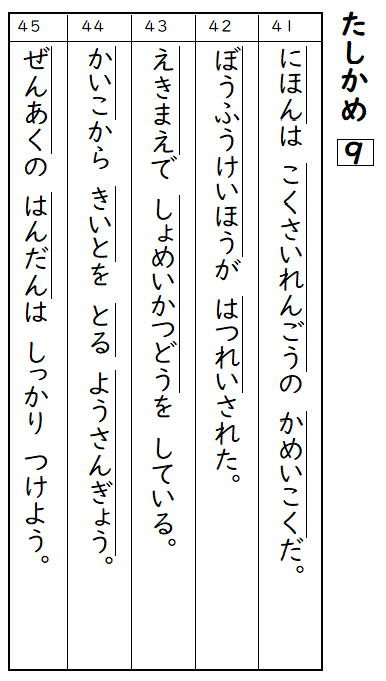 たしかめ 9
41
にほんは こくさいれんごうの かめいこくだ。
42
ぼうふうけいほうが はつれいされた。
43
えきまえで しょめいかつどうを している。
44
かいこから きいとを とる ようさんぎょう。
45
ぜんあくの はんだんは しっかり つけよう。